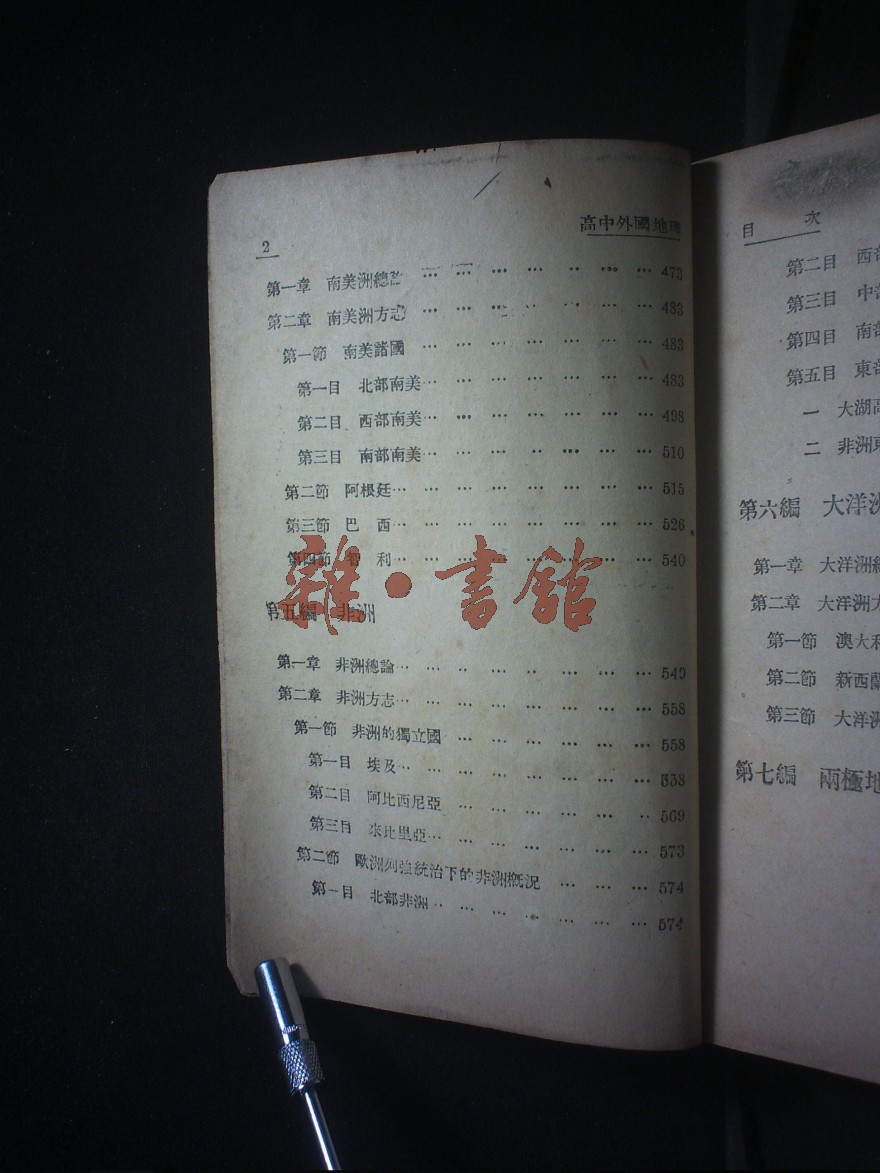 2
高中外國地理
第一章 南美洲總論 473
第二章 南美洲方志 483
第一節 南美諸國 483
第一目 北部南美 483
第二目 西部南美 498
第三目 南部南美 510
第二節 阿根廷 515
第三節 巴西 526
第四節 智利 540
雜·書館
第五編 非洲
第一章 非洲總論 549
第二章 非洲方志 558
第一節 非洲的獨立國 558
第一目 埃及 558
第二目 阿比西尼亞 569
第三目 來比里亞 573
第二節 歐洲列強統治下的非洲概況 574
第一目 北部非洲 574
目次
第二目 西部
第三目 中部
第四目 南部
第五目 東部
一 大湖高
二 非洲東
第六編 大洋洲
第一章 大洋洲總
第二章 大洋洲方
第一節 澳大利
第二節 新西蘭
第三節 大洋洲
第七編 兩極地